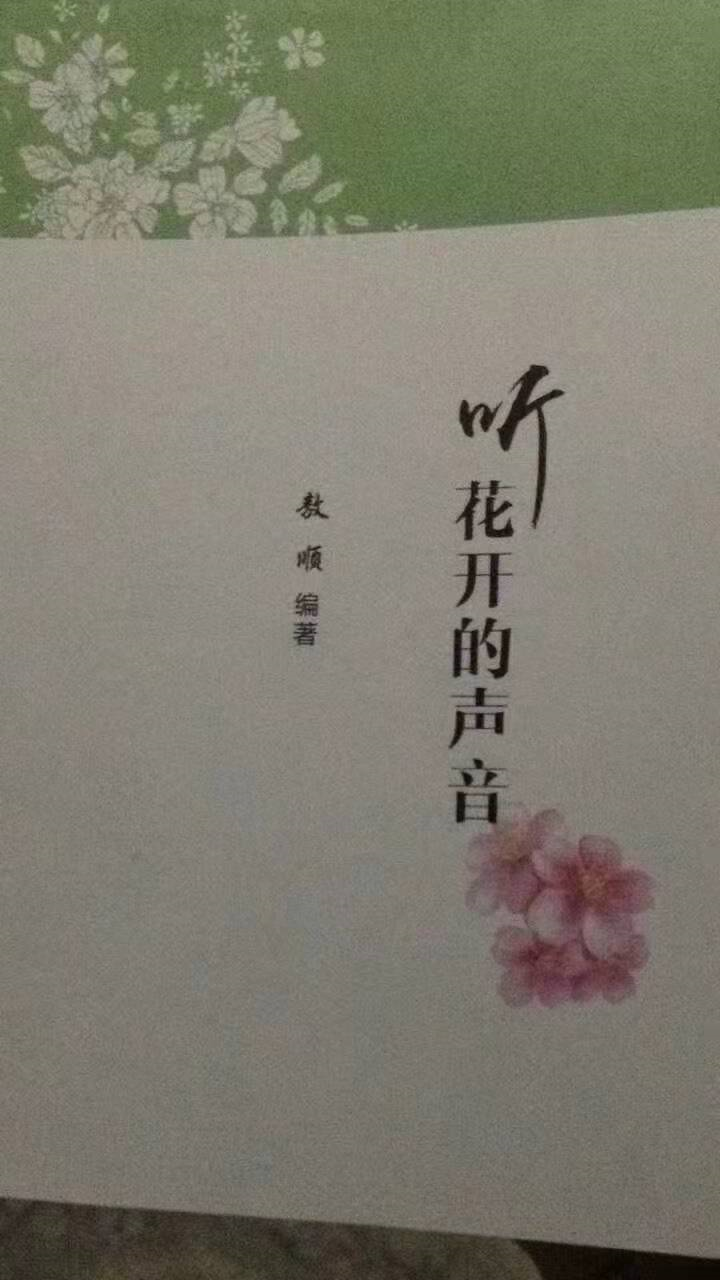 听花开的声音
敖顺 编著